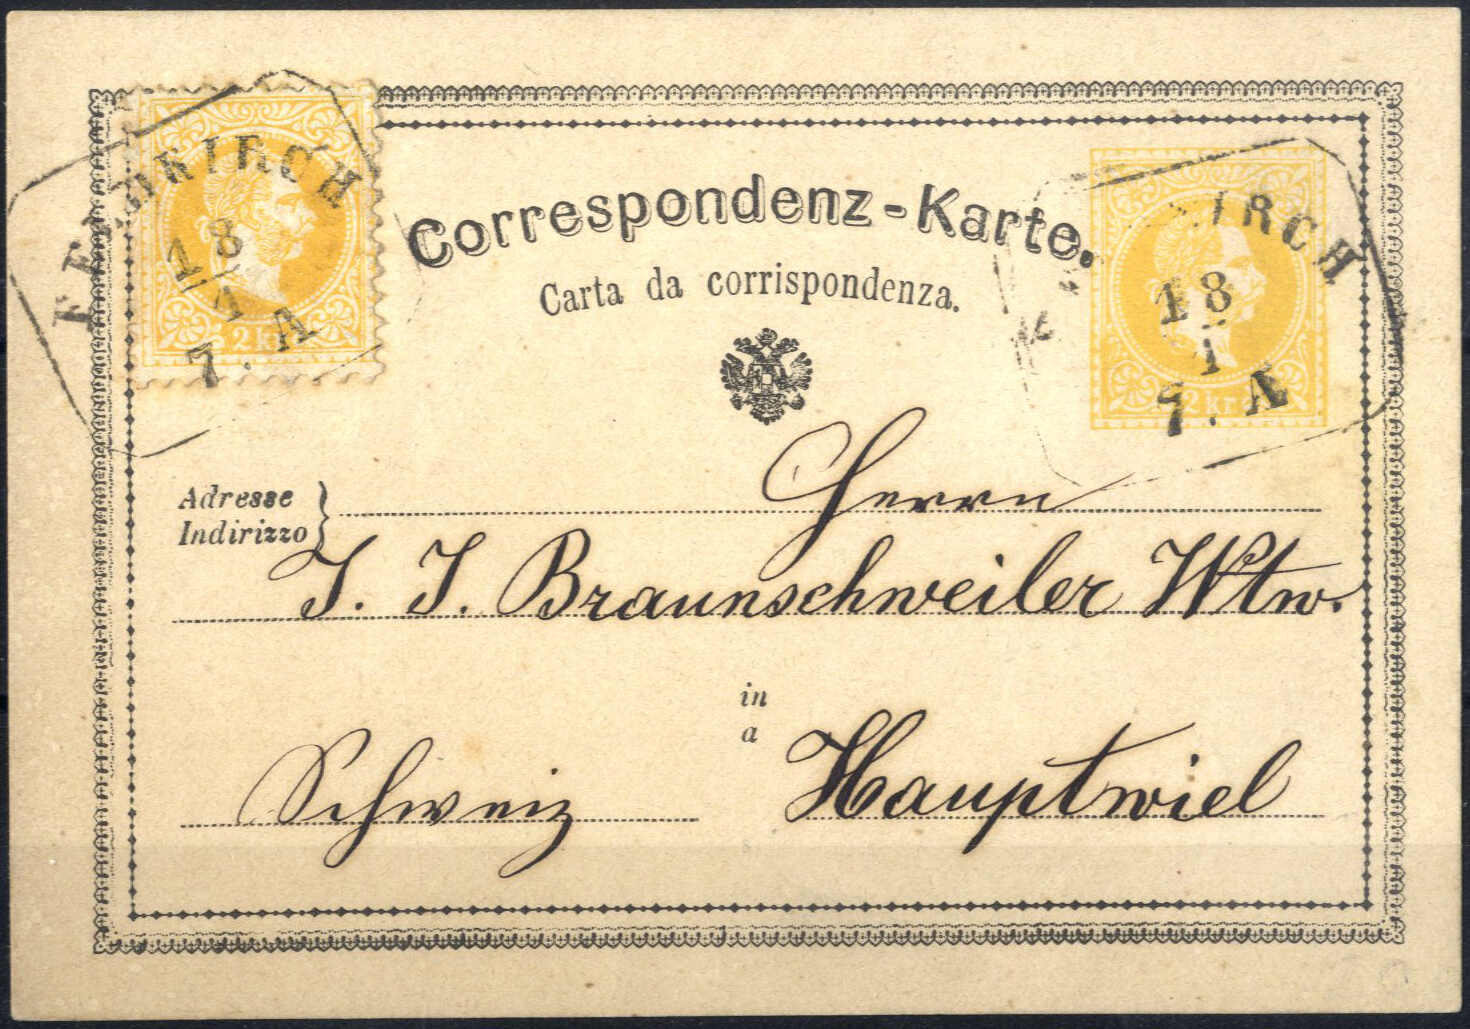 FELDKIRCH
18
1
7. A
2 kr.
Correspondenz-Karte.
Carta da corrispondenza.
IRCH
18
1
7. A
2 kr.
Adresse
Indirizzo
Herrn
J. J. Braunschweiler Wtw.
in
a
Schweiz
Hauptwiel